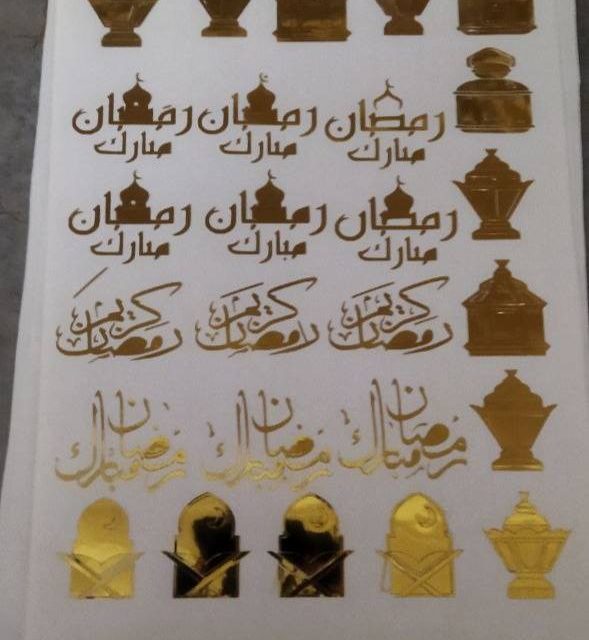 رمضان
مبارك
رمضان
مبارك
رمضان
مبارك
رمضان
مبارك
رمضان
مبارك
رمضان
مبارك
رمضان كريم
رمضان كريم
رمضان كريم
رمضان مبارك
رمضان مبارك
رمضان مبارك